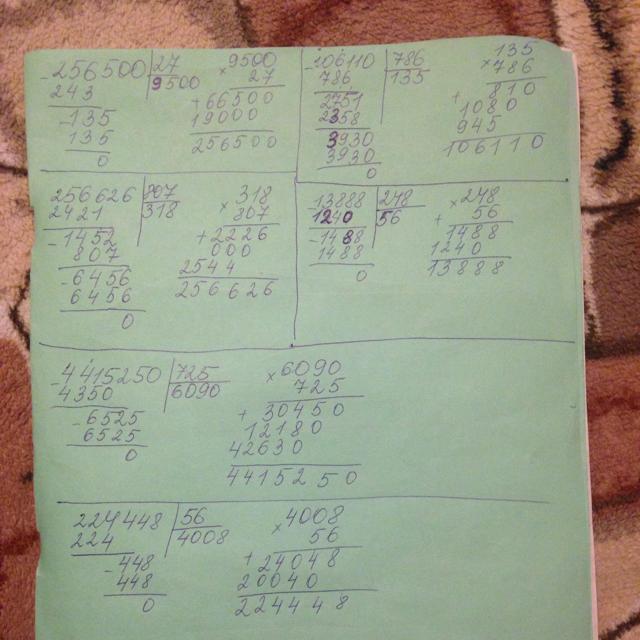 -256500|27
243 |9500
-135
135
0
×9500
27
+66500
19000
256500
-106110|786
786 |135
2751
2358
3930
3930
0
135
×786
810
+1080
945
106110
256626|807
2421 |318
-1452
807
-6456
6456
0
318
×807
+2226
000
2544
256626
13888|248
1240 |56
-1488
1488
0
×248
56
+1488
1240
13888
-4415250|725
4350 |6090
-6525
6525
0
×6090
725
+30450
12180
42630
4415250
224448|56
224 |4008
-448
448
0
×4008
56
+24048
20040
224448